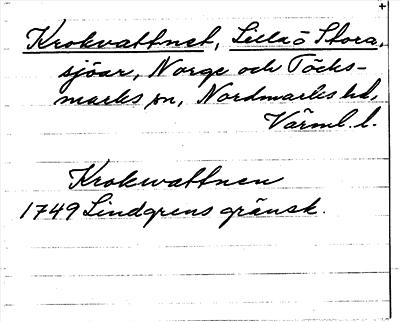 +
Krokvattnet, Lilla o Stora,
sjöar, Norge och Töcks-
marks sn, Nordmarks hd,
Värml. l.
Krokwattnen
1749 Lindgrens gränsk.